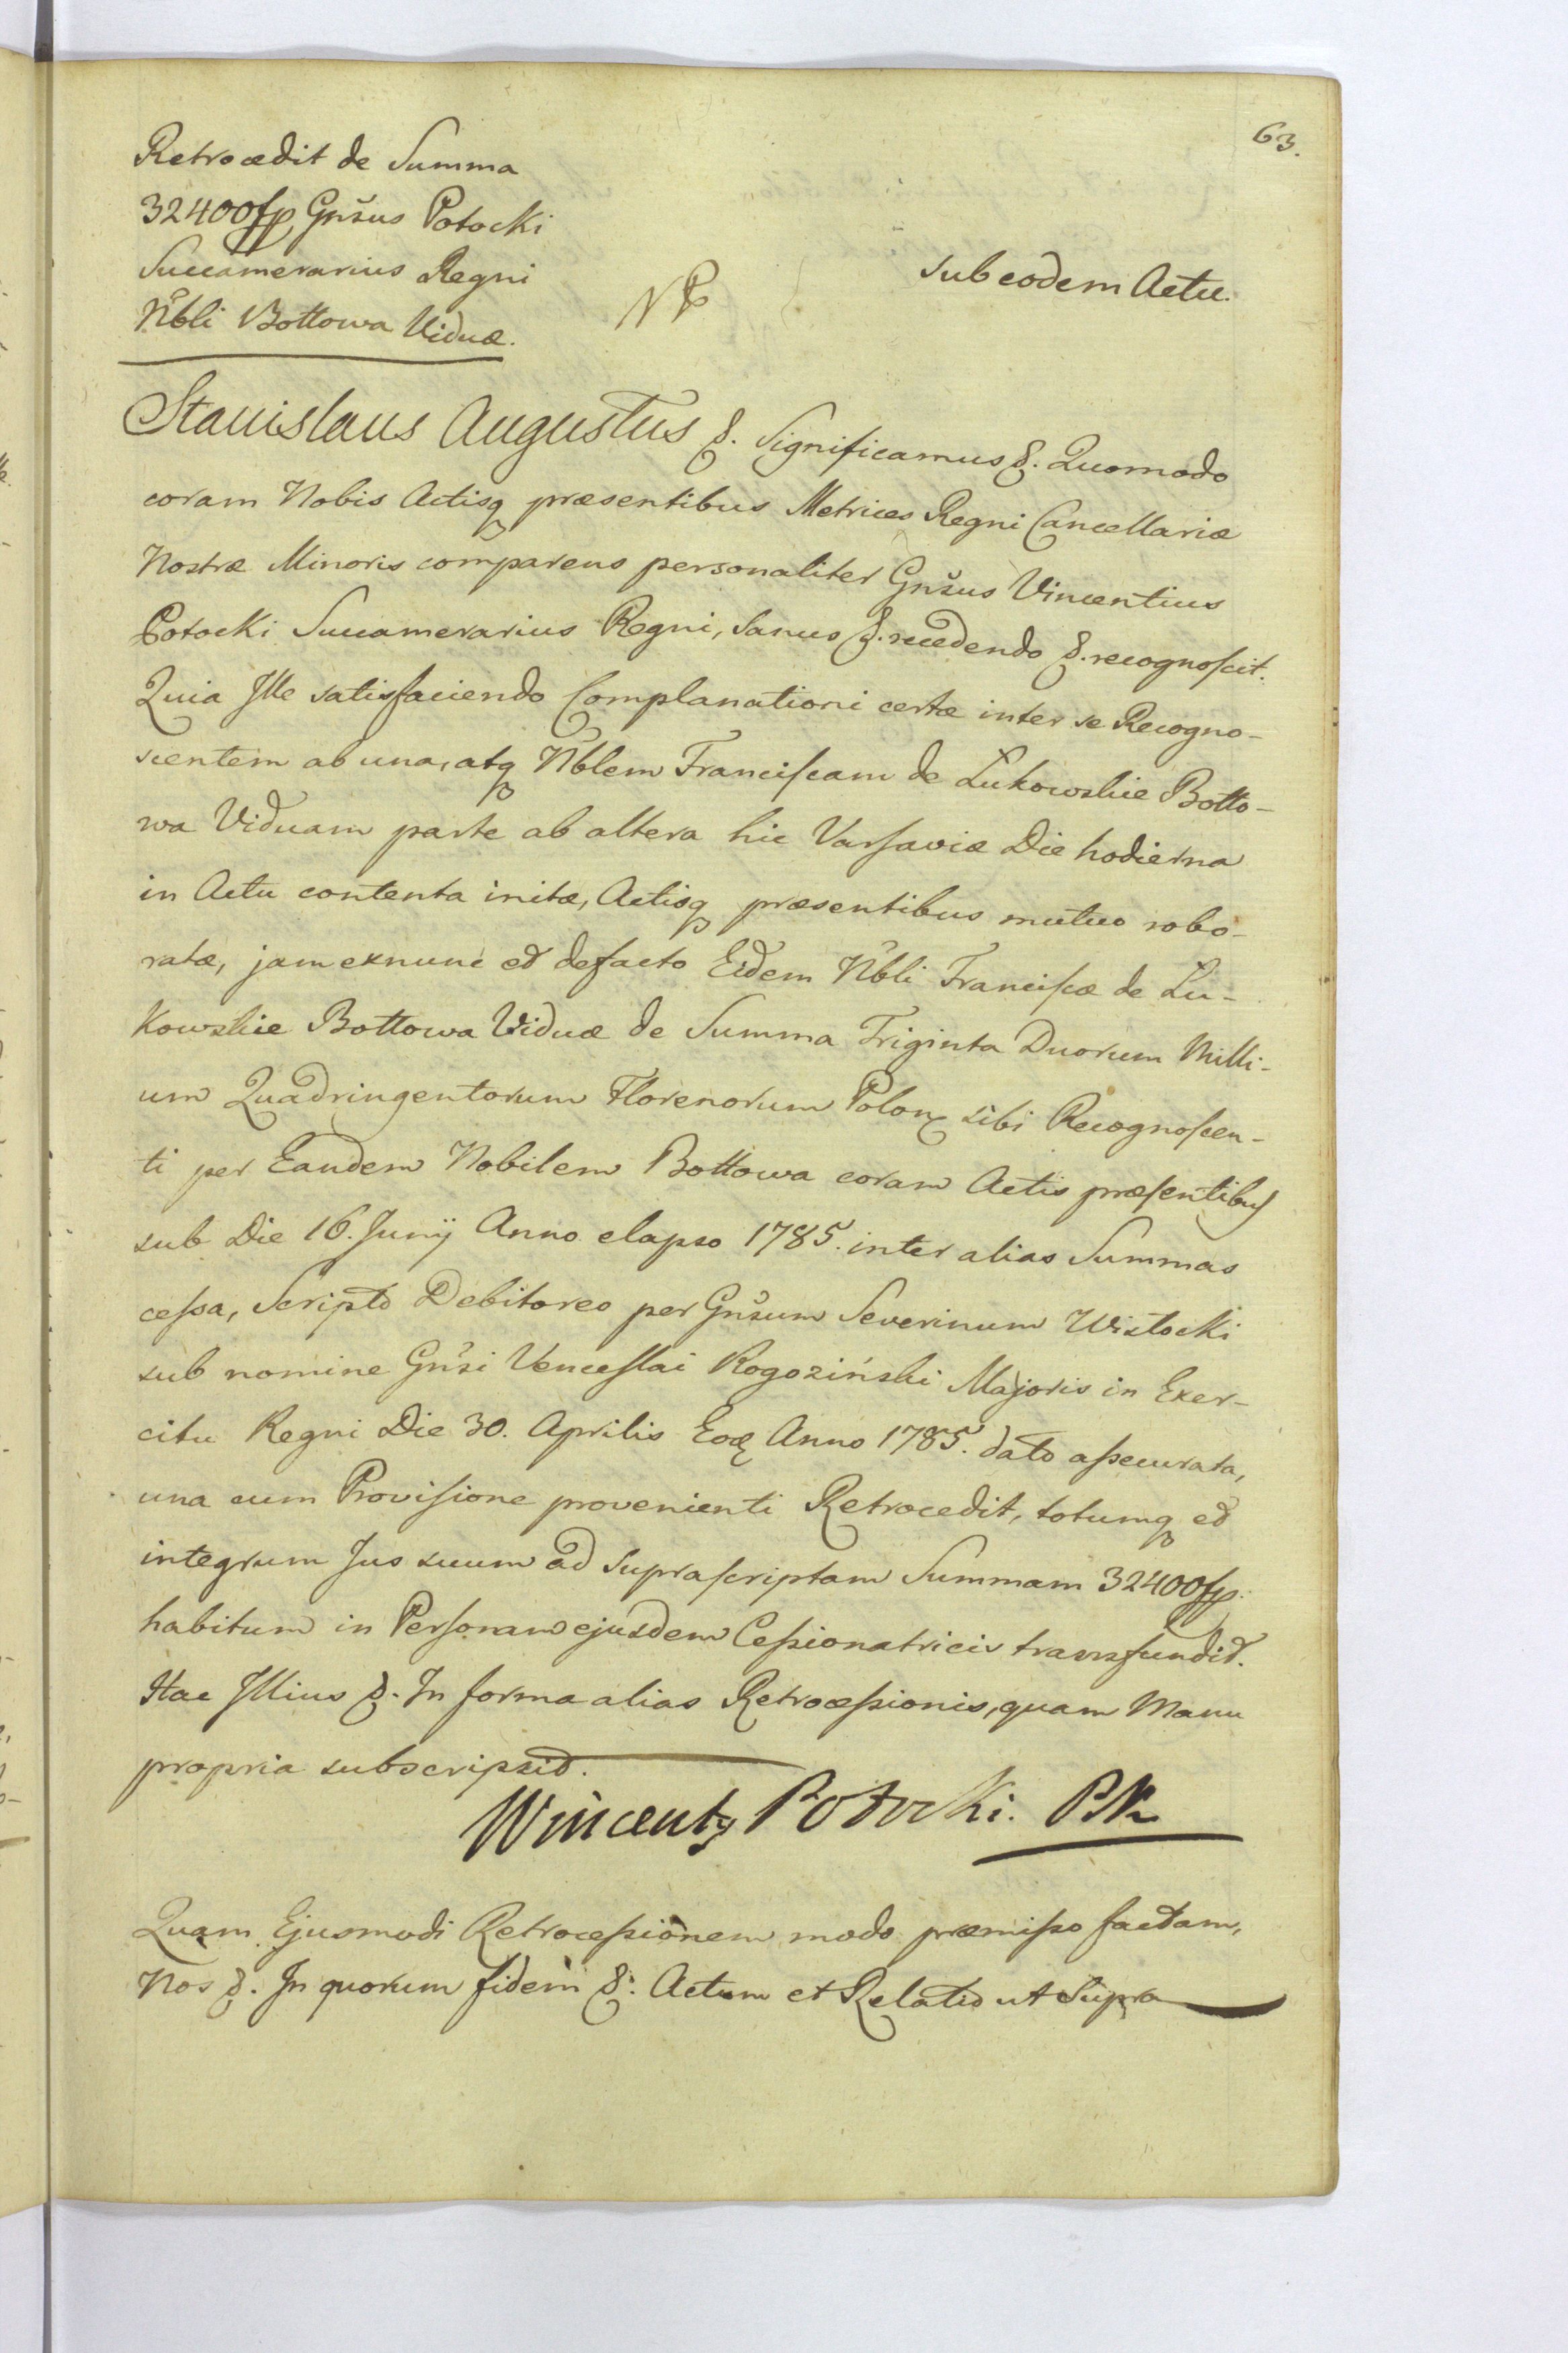 63.
Retrocedit de Summa
32400fp Gn̄sus Potocki
Succamerarius Regni
Nb̄li Bottowa Viduæ.
NP
sub eodem Actu.
Stanislaus Augustus &. Significamus &. Quomodo
coram Nobis Actisq præsentibus Metrices Regni Cancellariæ
Nostræ Minoris comparens personaliter Gn̄sus Vincentius
Potocki Succamerarius Regni, sanus &. recedendo &. recognoſcit.
Quia Ille satisfaciendo Complanationi certæ inter se Recogno-
scentem ab una, atq Nb̄lem Franciſcam de Łukowskie Botto-
wa Viduam parte ab altera hic Varſaviæ Die hodierna
in Actu contenta initæ, Actisq præsentibus mutuo robo-
ratæ, jam exnunc et defacto Eidem Nb̄li Franciſcæ de Łu-
kowskie Bottowa Viduæ de Summa Triginta Duorum Milli-
um Quadringentorum Florenorum Polon sibi Recognoſcen-
ti per Eandem Nobilem Bottowa coram Actis præſentibus
sub Die 16. Junij Anno elapso 1785. inter alias Summas
ceſsa, Scripto Debitoreo per Gn̄sum Severinum Wisłocki
sub nomine Gn̄si Venceſlai Rogoziński Majoris in Exer-
citu Regni Die 30. Aprilis Eoq Anno 1785. dato aſsecurata,
una cum Proviſione provenienti Retrocedit, totumq et
integrum Jus suum ad supraſcriptam Summam 32400fp.
habitum in Perſonam ejusdem Ceſsionatricis transfundit.
Hac Illius &. In forma alias Retroceſsionis, quam Manu
propria subscripsit.
Wincenty Potocki. PK
Quam Ejusmodi Retroceſsionem modo præmiſso factam,
Nos &. In quorum fidem &. Actum et Relatio ut Supra